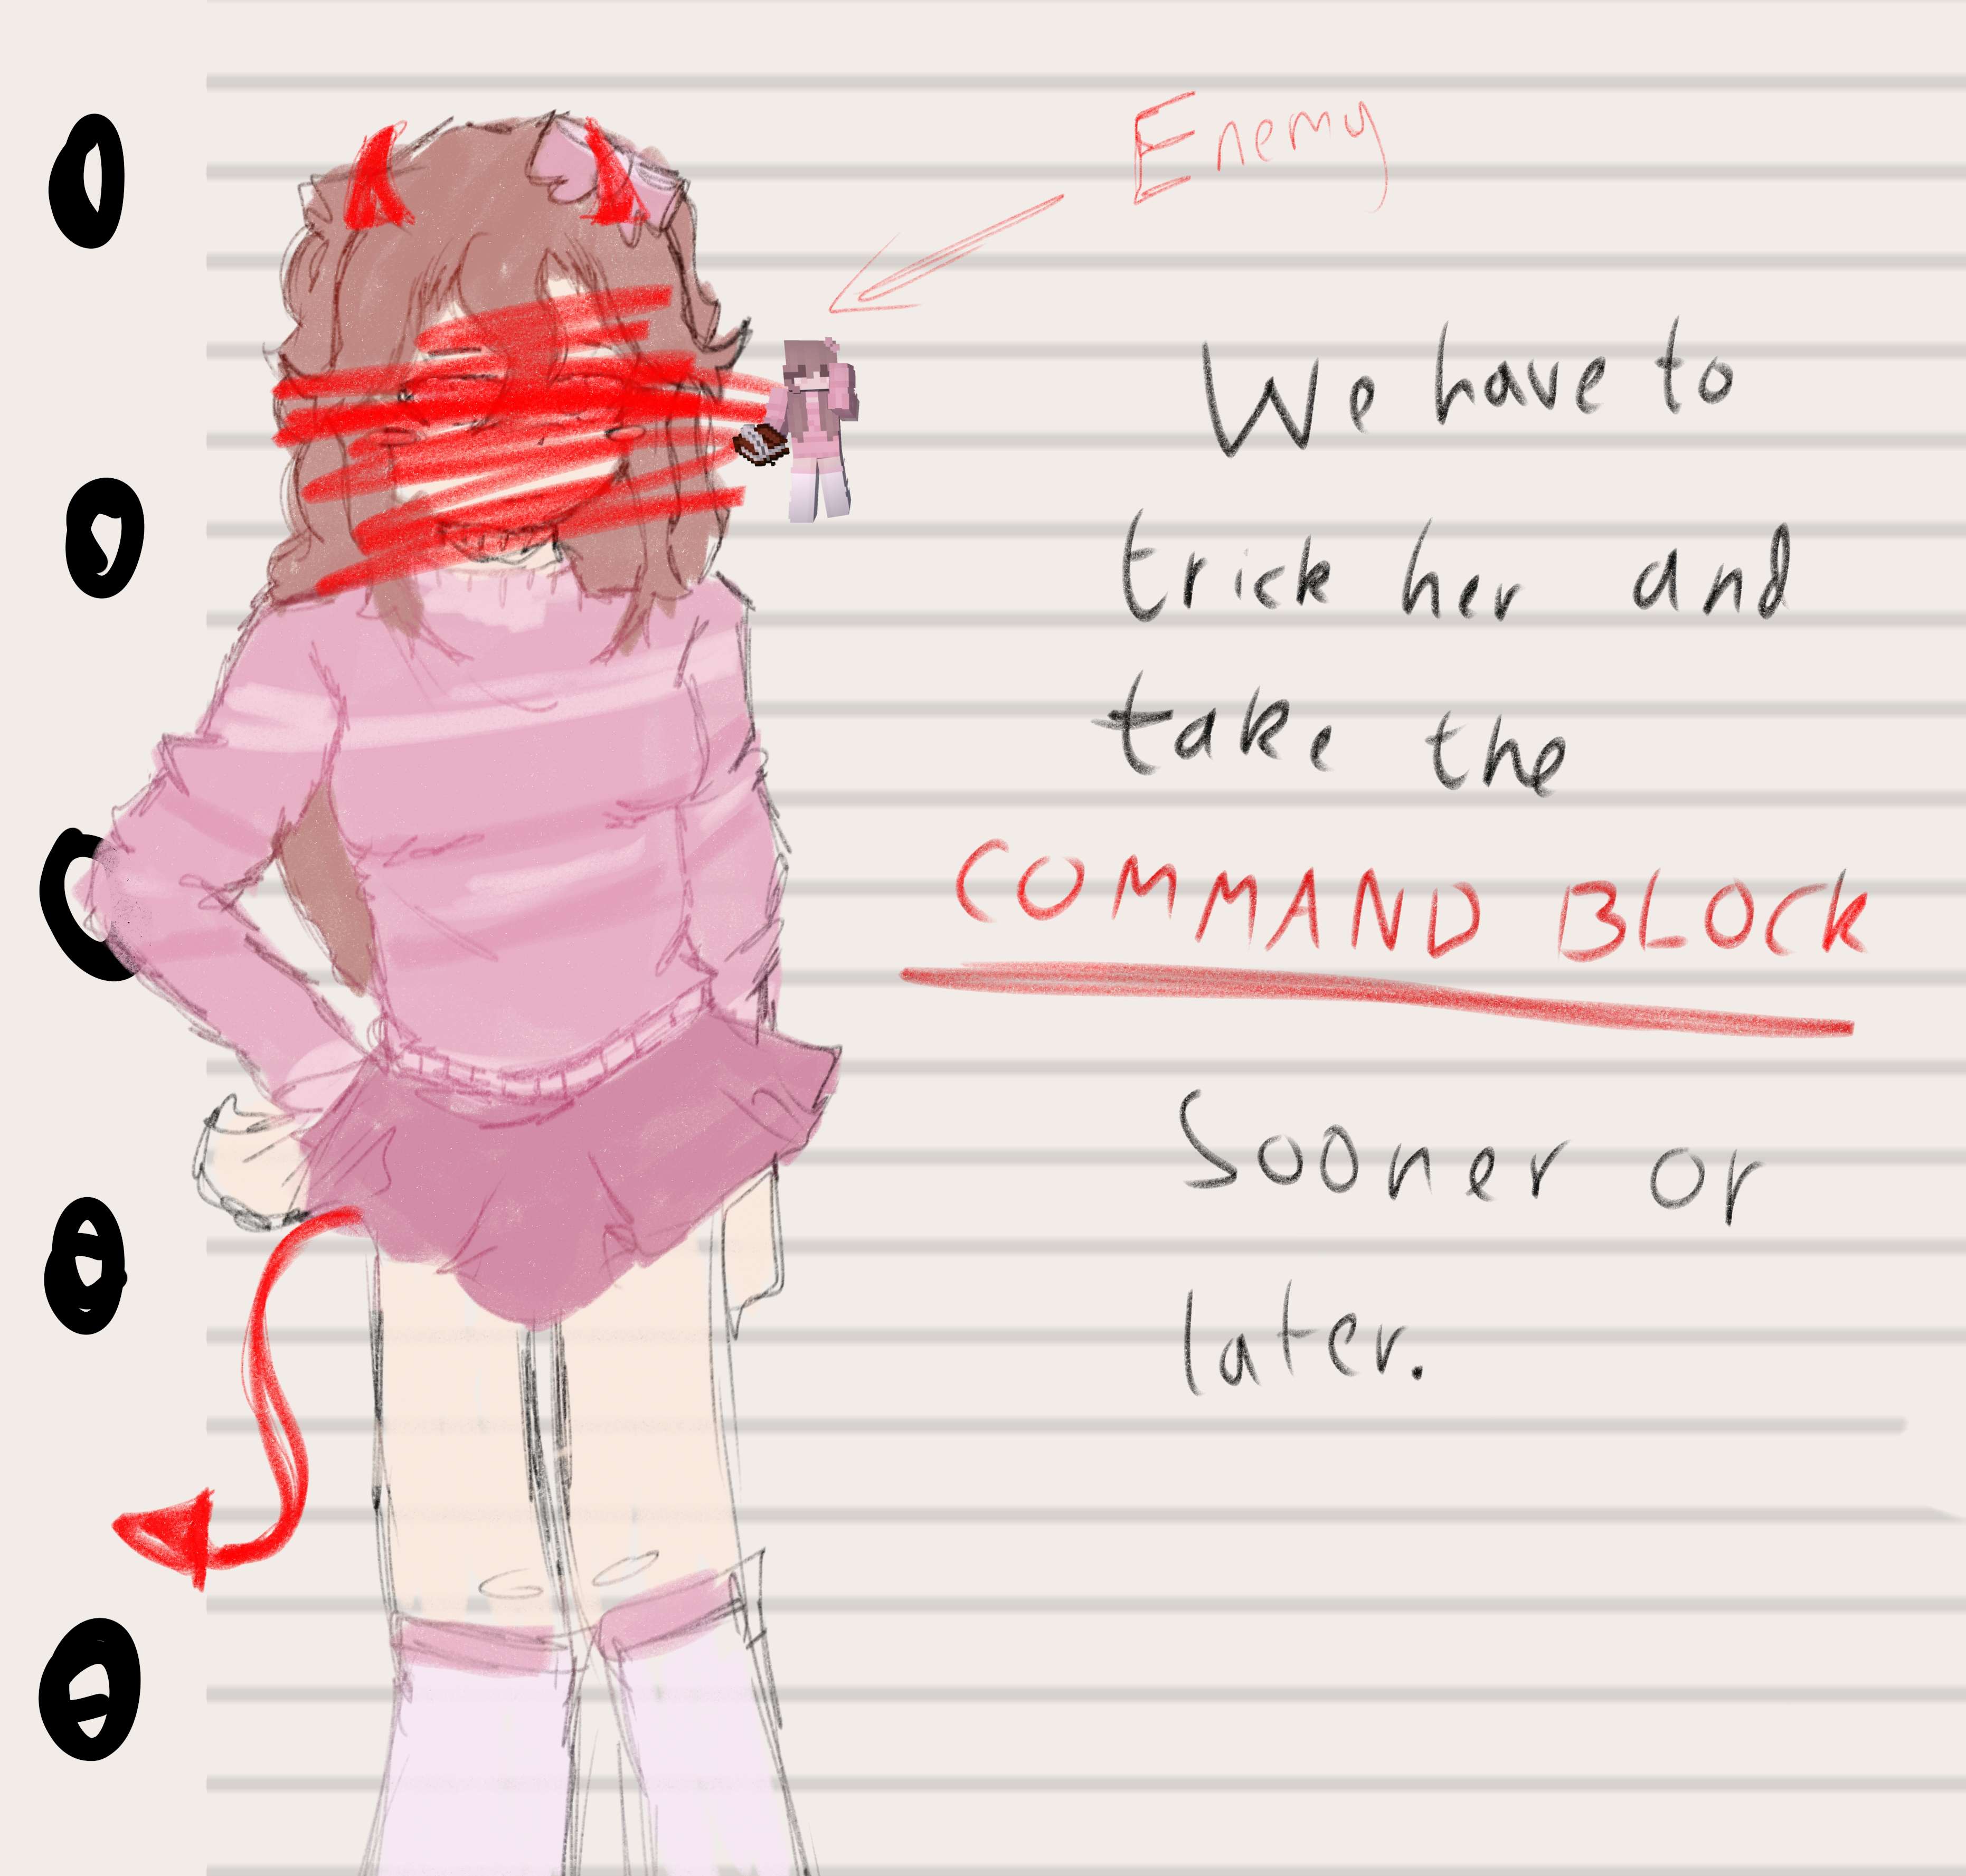 Enemy
We have to
trick her and
take the
COMMAND BLOCK
Sooner or
later.